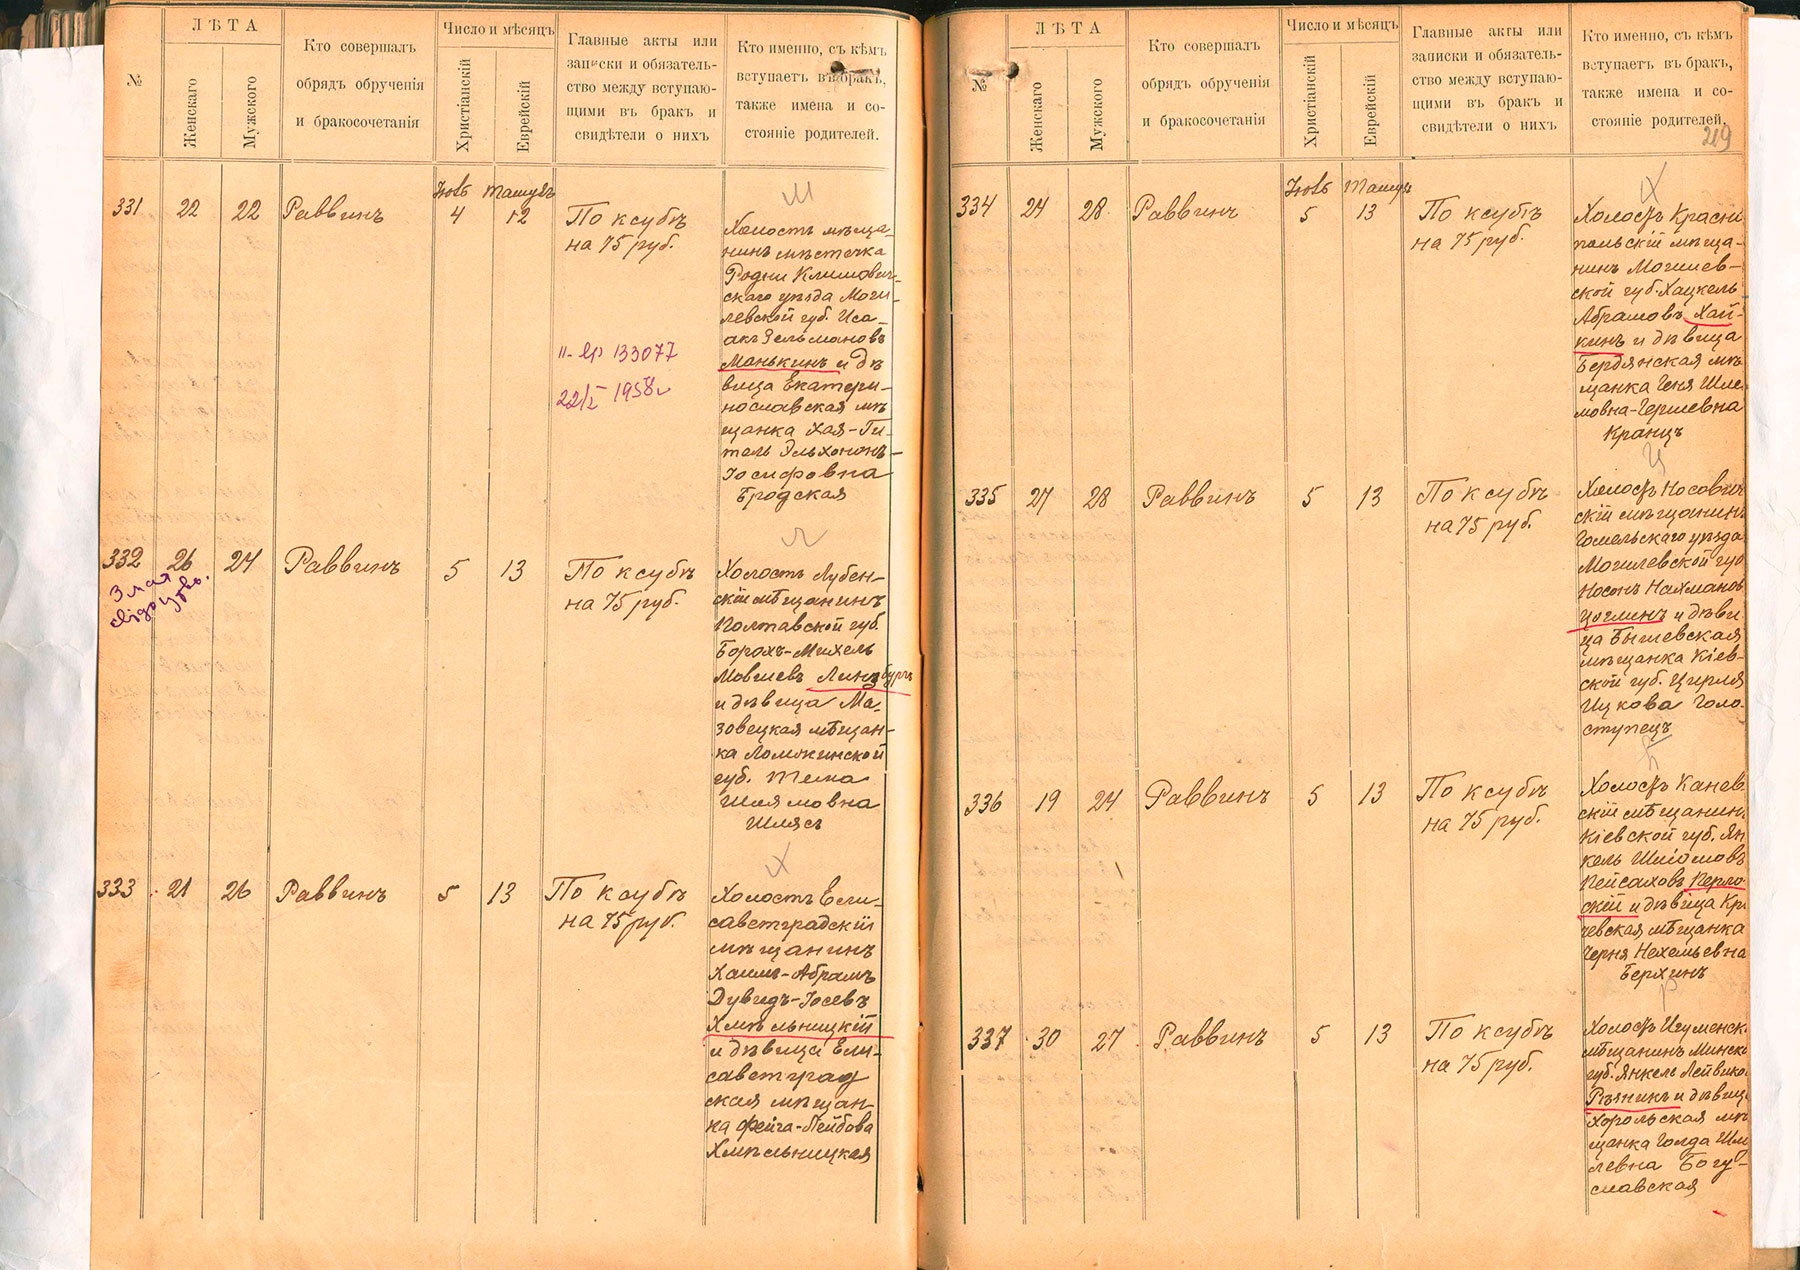 №
ЛѢТА
Женскаго
Мужского
Кто совершалъ
обрядъ обрученія
и бракосочетанія
Число и мѣсяцъ
Христіанскій
Еврейскій
Главные акты или
записки и обязатель-
ство между вступаю-
щими въ бракъ и
свидѣтели о нихъ
Кто именно, съ кѣмъ
вступаетъ въ бракъ,
также имена и со-
стояніе родителей.
331 22 22 Раввинъ
Іюль Тамузъ
4 12
По ксубѣ
на 75 руб.
Холостъ мѣща-
нинъ мѣстечка
Родни Климович-
скаго уѣзда Моги-
левской губ. Иса-
акъ Зельмановъ
Манькинъ и дѣ
вица Екатери-
нославская мѣ
щанка Хая-Ги-
тель Эльхононъ-
Іосифовна
Бродская
133077
22/I 1958 г
332 26 24 Раввинъ 5 13
По ксубѣ
на 75 руб.
Холостъ Лубен-
скій мѣщанинъ
Полтавской губ.
Борохъ-Михель
Мовшевъ Линзбургъ
и дѣвица Ма-
зовецкая мѣщан-
ка Ломжинской
губ. Тема
Шлямовна
Шлясъ
333 21 26 Раввинъ 5 13
По ксубѣ
на 75 руб.
Холостъ Ели-
саветградскій
мѣщанинъ
Хаимъ-Абрамъ
Дувидъ-Іосевъ
Хмѣльницкій
и дѣвица Ели-
саветград
ская мѣщан-
ка Фейга-Лейбова
Хмѣльницкая
№
ЛѢТА
Женскаго
Мужского
Кто совершалъ
обрядъ обрученія
и бракосочетанія
Число и мѣсяцъ
Христіанскій
Еврейскій
Главные акты или
записки и обязатель-
ство между вступаю-
щими въ бракъ и
свидѣтели о нихъ
Кто именно, съ кѣмъ
вступаетъ въ бракъ,
также имена и со-
стояніе родителей.
219
334 24 28 Раввинъ
Іюль Тамузъ
5 13
По ксубѣ
на 75 руб.
Холостъ Красно
польскій мѣща-
нинъ Могилев-
ской губ. Хацкель
Абрамовъ Хай-
кинъ и дѣвица
Бердянская мѣ
щанка Геня Шле
мовна-Гершевна
Кранцъ
335 27 28 Раввинъ 5 13
По ксубѣ
на 75 руб.
Холостъ Носович
скій мѣщанинъ
Гомельскаго уѣзда
Могилевской губ
Носонъ Нахманов
Цоглинъ и дѣви
ца Бышевская
мѣщанка Кіев-
ской губ. Цирля
Ицкова Голо-
ступецъ
336 19 24 Раввинъ 5 13
По ксубѣ
на 75 руб.
Холостъ Канев
скій мѣщанинъ
Кіевской губ. Ян
кель Шліомовъ
Пейсаховъ Перло
скій и дѣвица Кри
чевская мѣщанка
Черня Нехемьевна
Берхинъ
337 30 27 Раввинъ 5 13
По ксубѣ
на 75 руб.
Холостъ Игуменск
мѣщанинъ Минск
губ. Янкель Лейвико
Рѣзникъ и дѣвиц
Хорольская мѣ
щанка Голда Шм
левна Богу-
славская